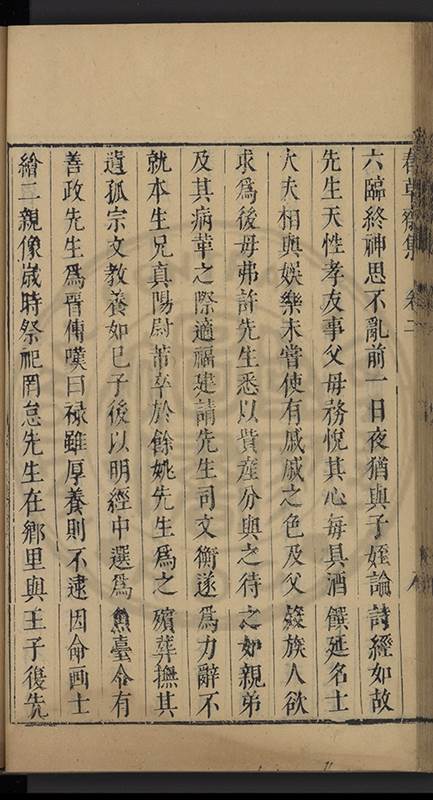 春草齋集 卷二
六臨終神思不亂前一日夜猶與子姪論詩經如故
先生天性孝友事父母務悅其心每具酒饌延名士
大夫相與娛樂未嘗使有戚戚之色及父歿族人欲
求爲後母弗許先生悉以貲産分與之待之如親弟
及其病革之際適福建請先生司文衡遂爲力辭不
就本生兄真陽尉芾卒於餘姚先生爲之殯葬撫其
遺孤宗文教養如己子後以明經中選爲魚臺令有
善政先生爲晋傅嘆曰禄雖厚養則不逮因命画士
繪二親像歲時祭祀罔怠先生在鄉里與王子復先